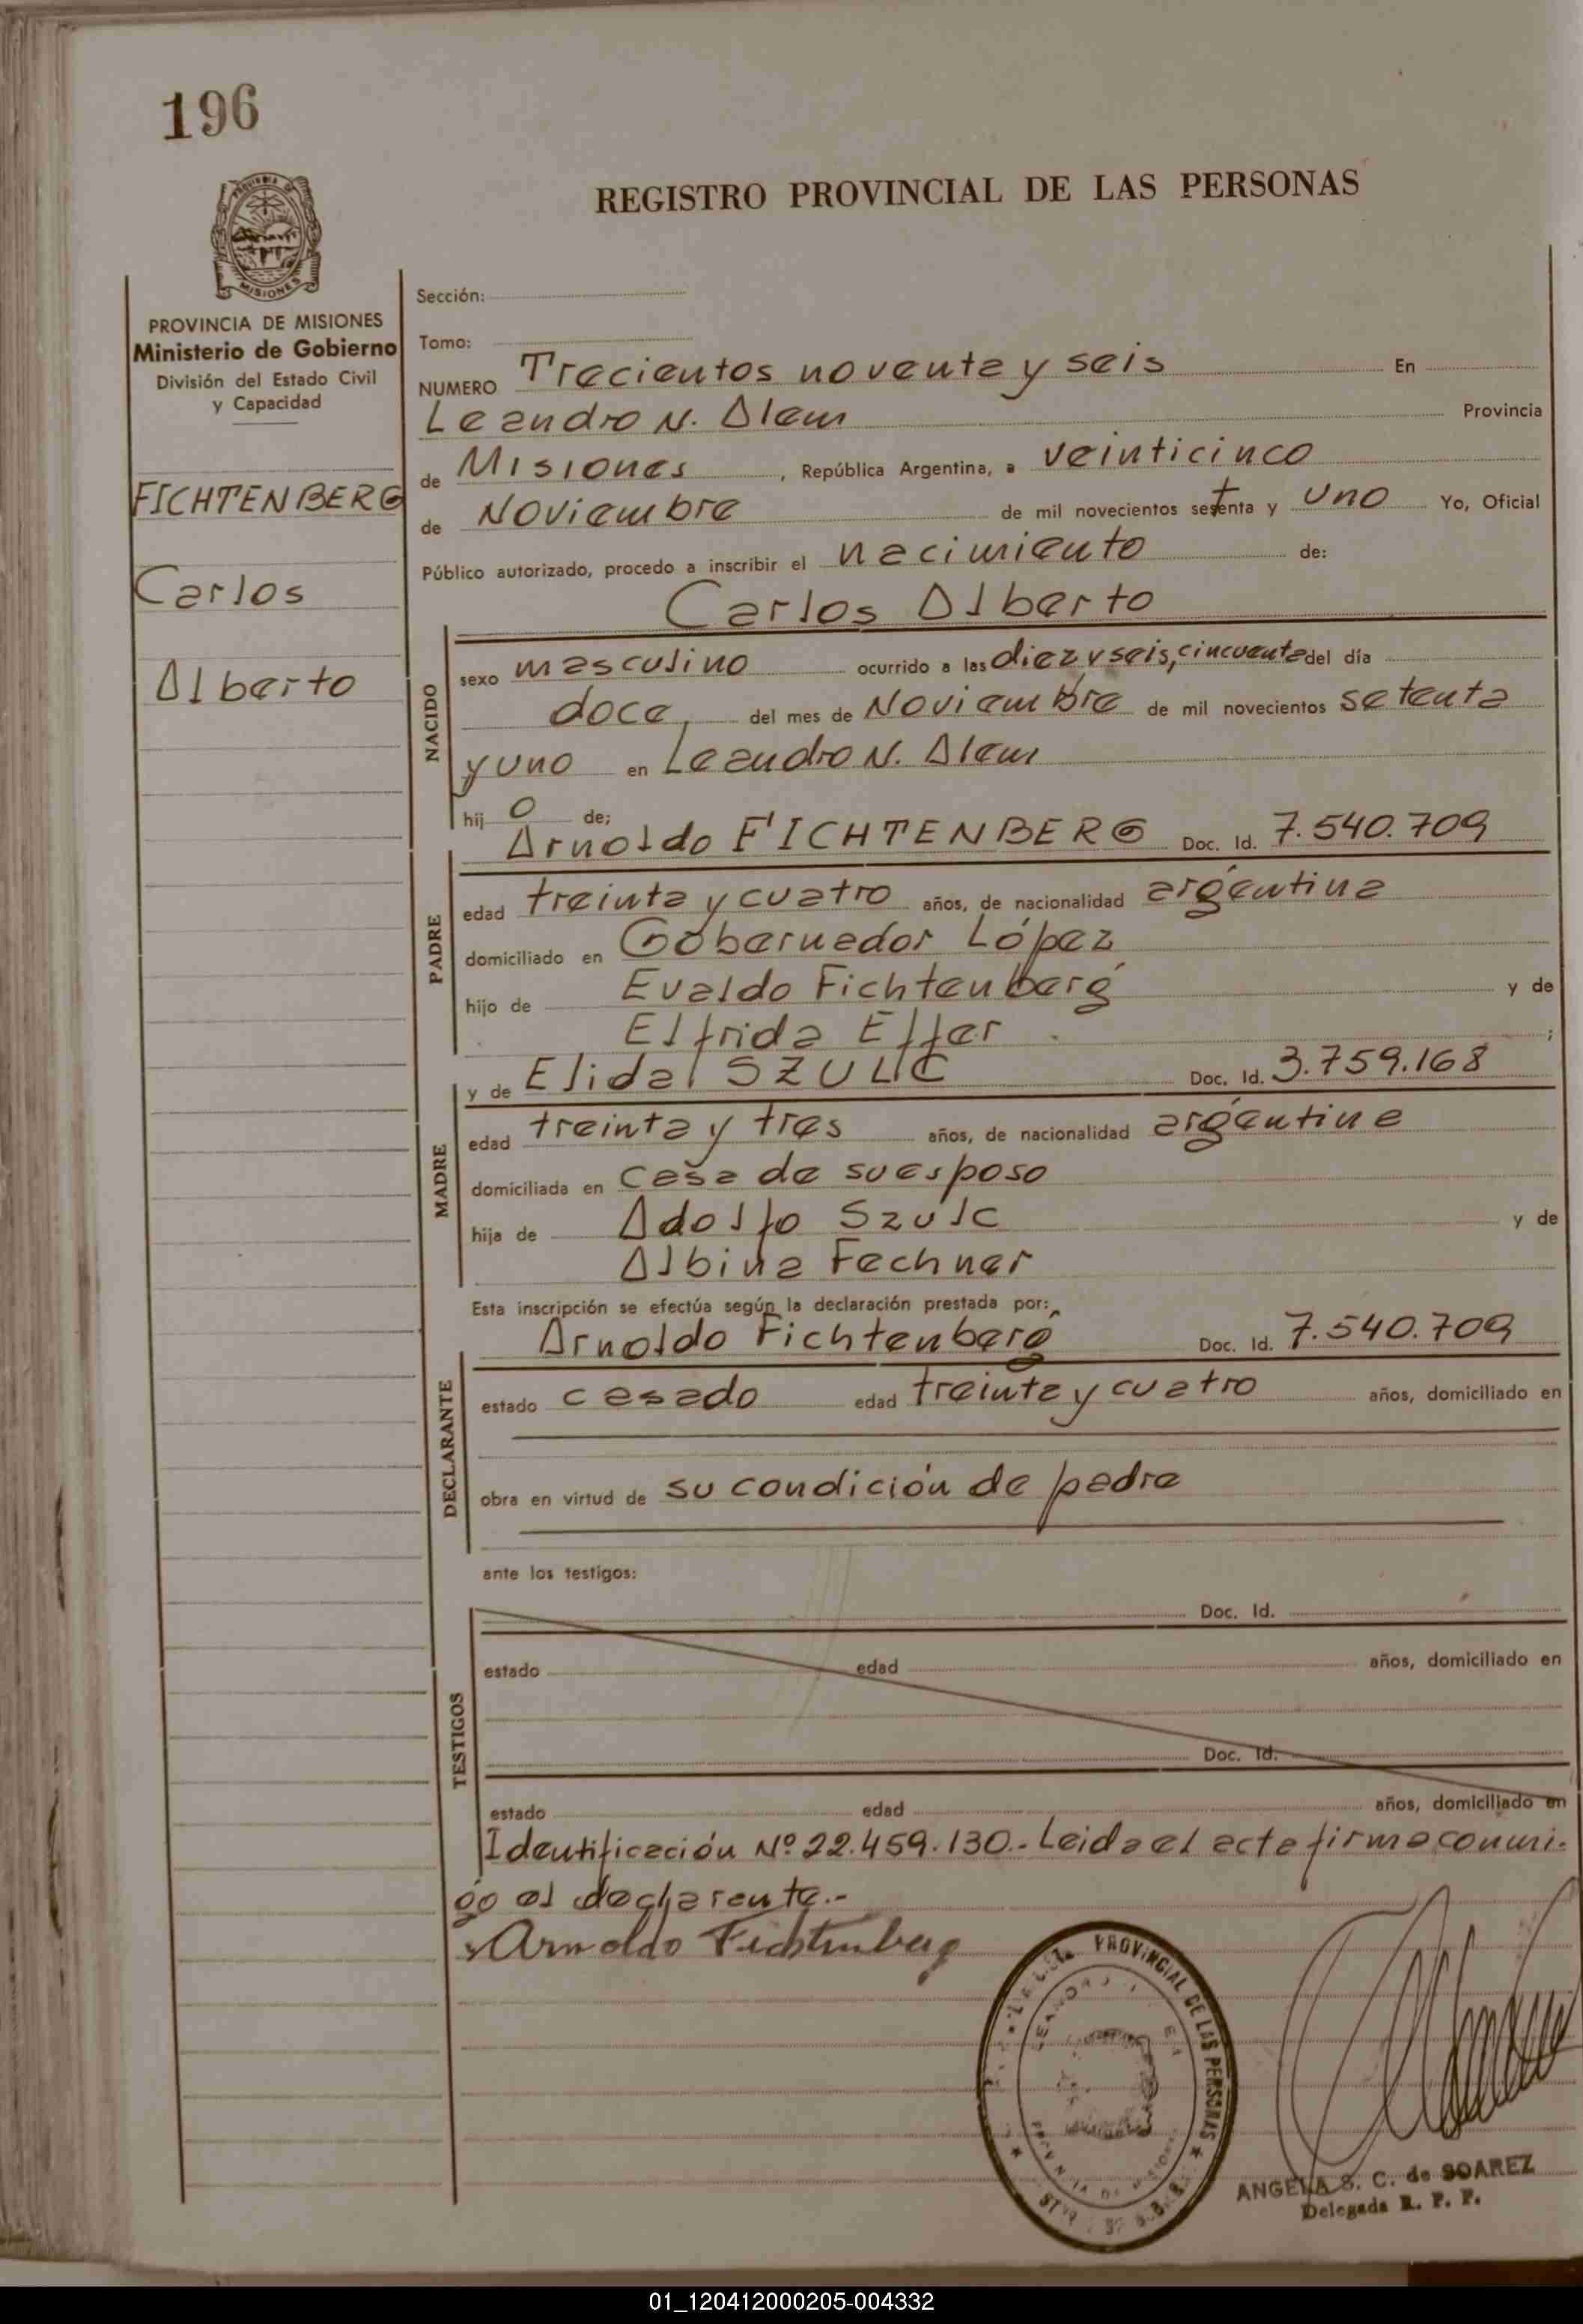 196
REGISTRO PROVINCIAL DE LAS PERSONAS
MISIONES
PROVINCIA DE MISIONES
Ministerio de Gobierno
División del Estado Civil
y Capacidad
FICHTENBERG
Carlos
Alberto
Sección:
Tomo:
NUMERO Trecientos noventa y seis En
Leandro N. Alem Provincia
de Misiones, República Argentina, a veinticinco
de Noviembre de mil novecientos setenta y uno Yo, Oficial
Público autorizado, procedo a inscribir el nacimiento de:
Carlos Alberto
NACIDO
sexo masculino ocurrido a las diez y seis, cincuenta del día
doce, del mes de Noviembre de mil novecientos setenta
y uno en Leandro N. Alem
hij o de;
Arnoldo FICHTENBERG Doc. Id. 7.540.709
PADRE
edad treinta y cuatro años, de nacionalidad argentina
domiciliado en Gobernador López
hijo de Evaldo Fichtenberg y de
Elfrida Effer ;
y de Elida SZULC Doc. Id. 3.759.168
MADRE
edad treinta y tres años, de nacionalidad argentina
domiciliada en casa de su esposo
hija de Adolfo Szulc y de
Albina Fechner
Esta inscripción se efectúa según la declaración prestada por:
Arnoldo Fichtenberg Doc. Id. 7.540.709
DECLARANTE
estado casado edad treinta y cuatro años, domiciliado en
obra en virtud de su condición de padre
ante los testigos:
Doc. Id.
TESTIGOS
estado edad años, domiciliado en
Doc. Id.
estado edad años, domiciliado en
Identificación Nº 22.459.130.- Leida el acta firma conmi-
go el declarante.-
Arnoldo Fichtenberg
PROVINCIAL DE LAS PERSONAS
ANGELA S. C. de SOAREZ
Delegada R. P. P.
01_120412000205-004332